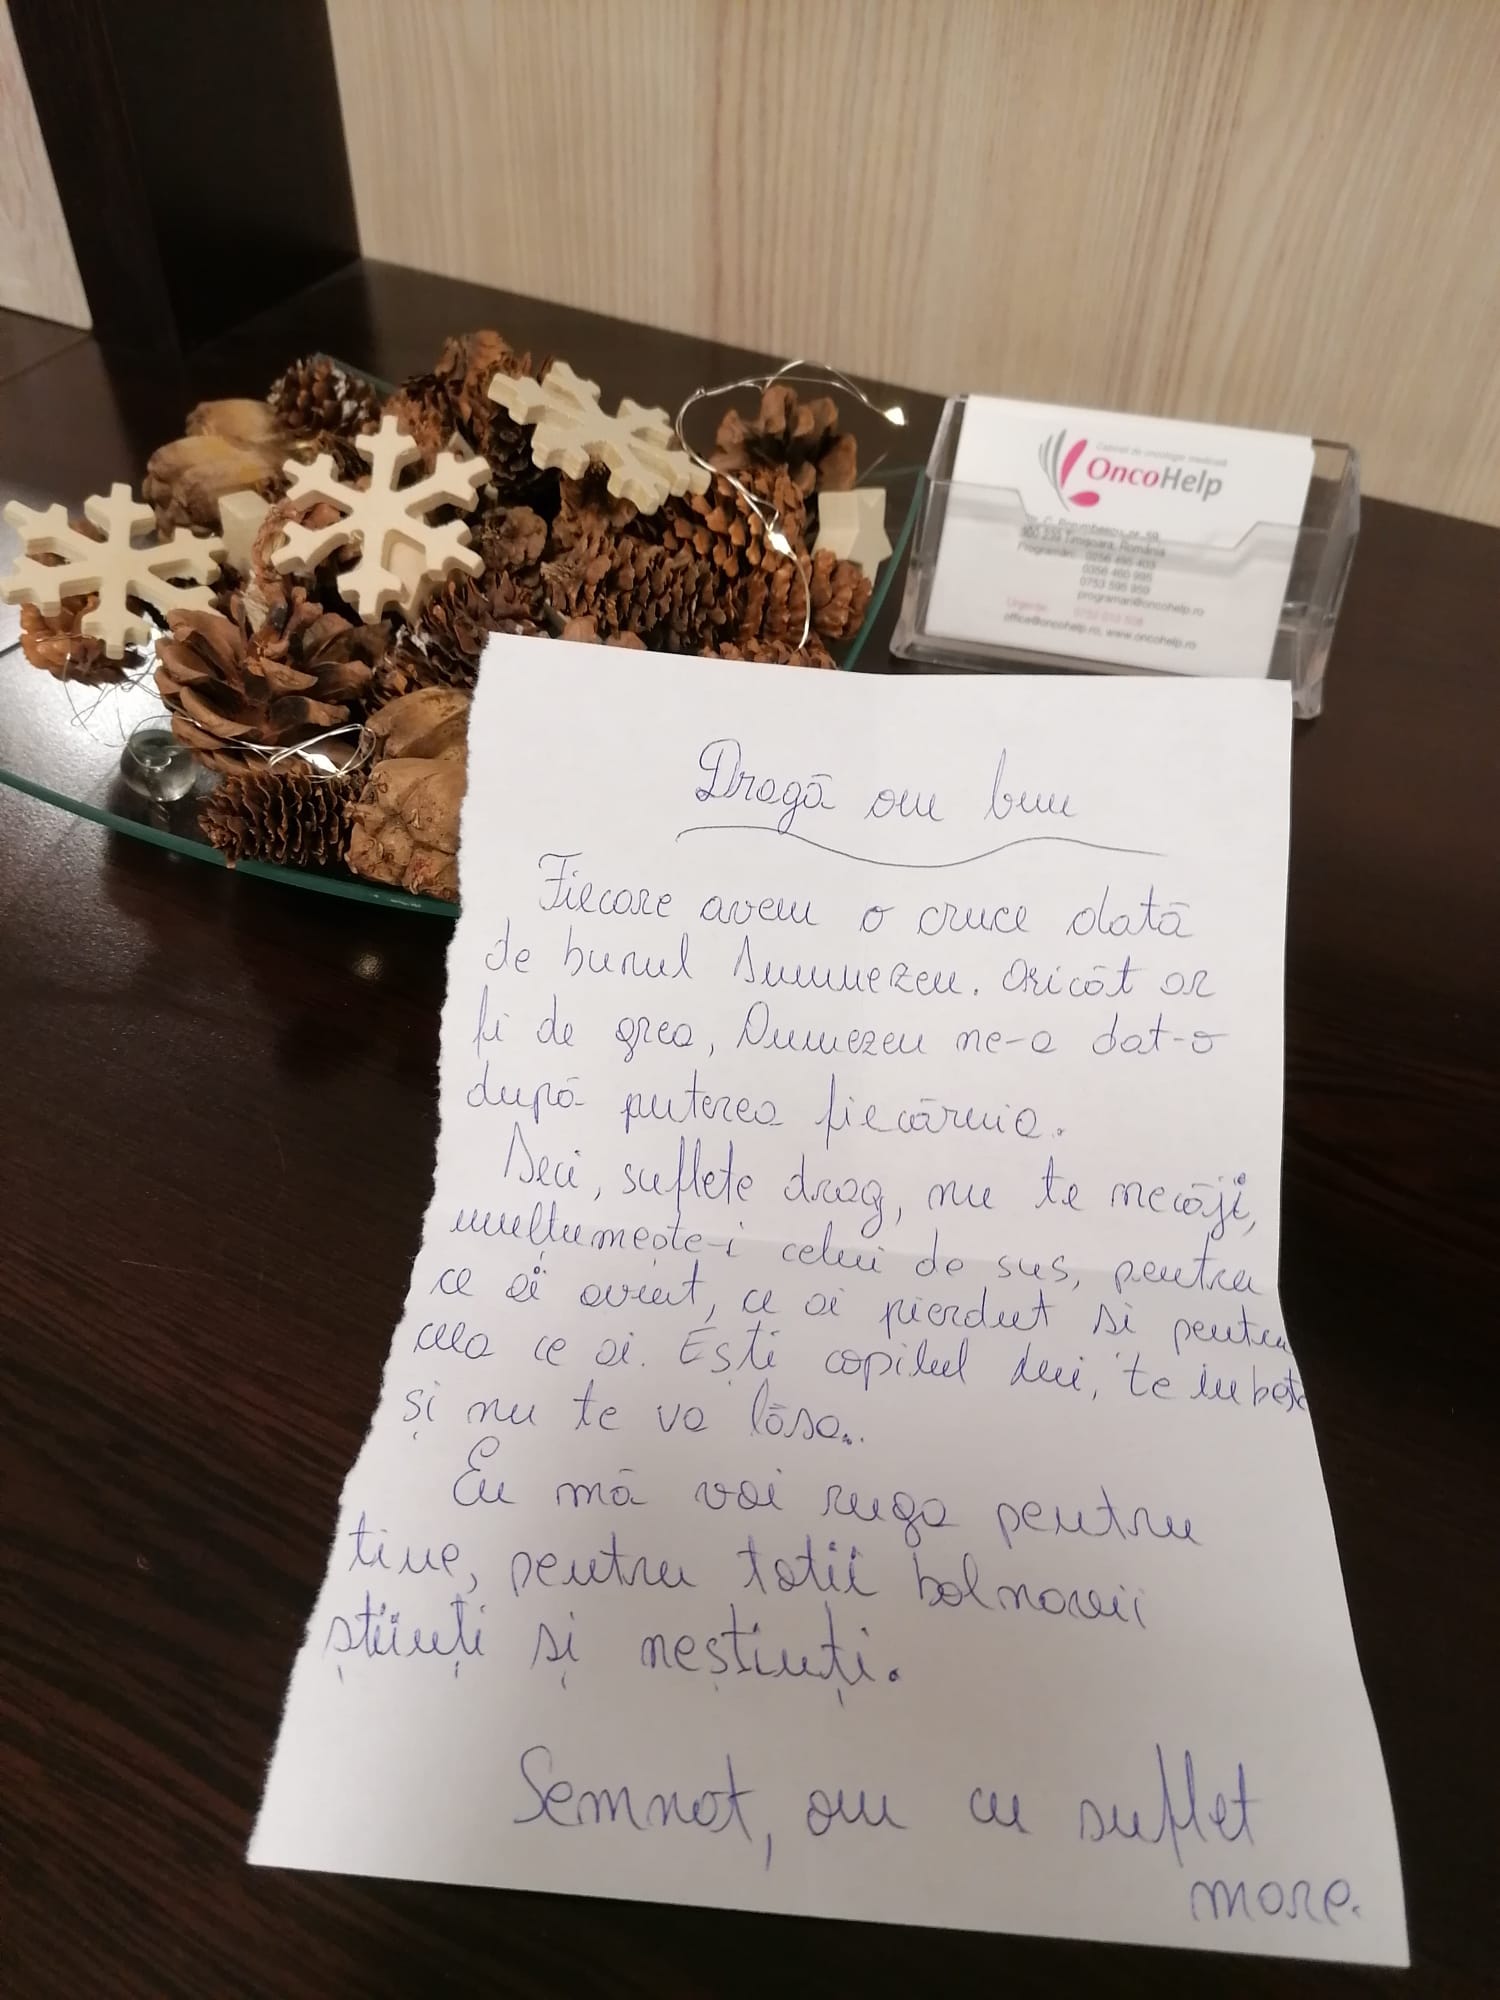 Cabinet de oncologie medicală
OncoHelp
300 239 Timișoara, România
Programări: 0256 495 403
0356 460 995
0753 595 959
programari@oncohelp.ro
Urgențe:
office@oncohelp.ro, www.oncohelp.ro
Dragă om bun
Fiecare avem o cruce dată
de bunul Dumnezeu. Oricât ar
fi de grea, Dumezeu ne-a dat-o
după puterea fiecăruia.
Deci, suflete drag, nu te necăji,
mulțumește-i celui de sus, pentru
ce ai avut, ce ai pierdut si pentru
ceea ce ai. Ești copilul Lui, te iubește
și nu te va lăsa..
Eu mă voi ruga pentru
tine, pentru totii bolnavii
știiuți și neștiuți.
Semnat, om cu suflet
mare.